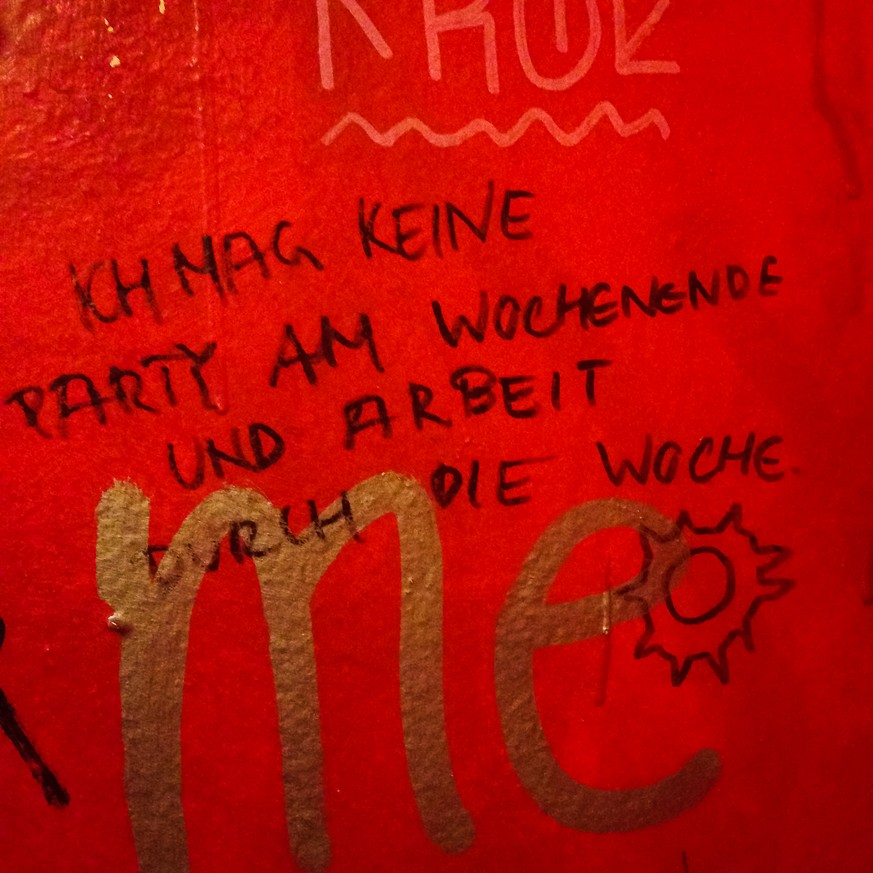 ICH MAG KEINE
PARTY AM WOCHENENDE
UND ARBEIT
DURCH DIE WOCHE.
me